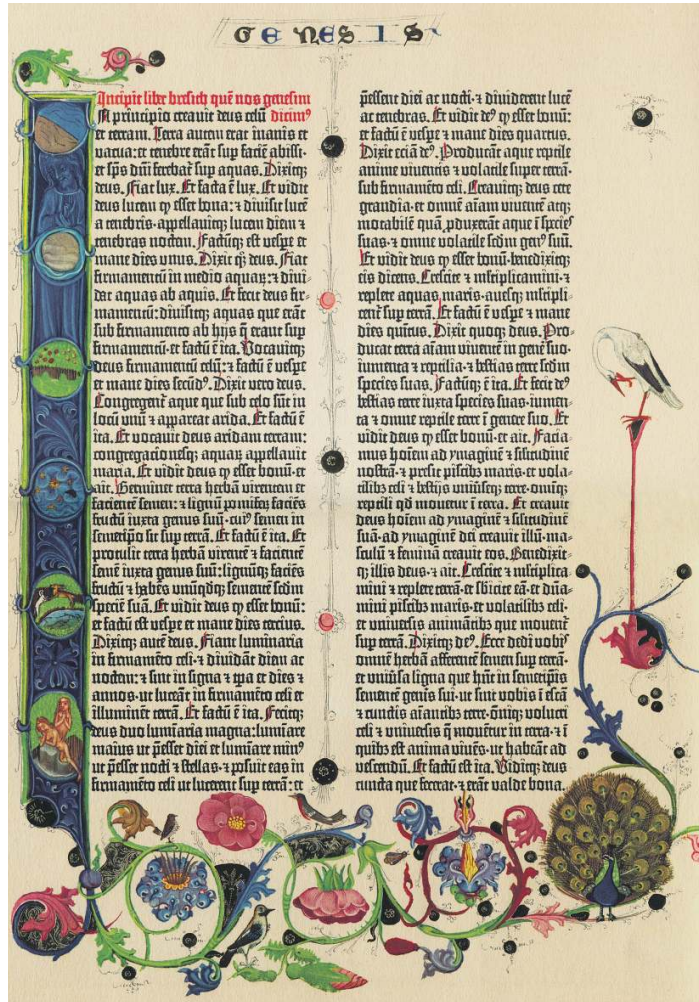 GENESIS
Incipit liber bresith quē nos genesim
In principio creavit deus celū dicim⁹
et terram. Terra autem erat inanis et
vacua: et tenebre erāt sup faciē abissi·
et sp̄s dn̄i ferebat̄ sup aquas. Dixitq̄
deus. Fiat lux. Et facta ē lux. Et vidit
deus lucem q̄ esset bona: ⁊ divisit lucē
a tenebris·appellavitq̄ lucem diem ⁊
tenebras noctem. Factūq̄ est vespe et
mane dies unus. Dixit q̄ deus. Fiat
firmamentū in medio aquaꝝ: ⁊ divi-
dat aquas ab aquis. Et fecit deus fir-
mamentū: divisitq̄ aquas que erāt
sub firmamento ab hijs q̄ erant sup
firmamentū·et factū ē ita. Vocavitq̄
deus firmamentū celū: ⁊ factū ē vespe
et mane dies secūd⁹. Dixit vero deus.
Congregent̄ aque que sub celo sūt in
locū unū ⁊ appareat arida. Et factū ē
ita. Et vocavit deus aridam terram:
congregacionesq̄ aquaꝝ appellavit
maria. Et vidit deus q̄ esset bonū·et
ait. Germinet terra herbā virentem et
facientē semen: ⁊ lignū pomifeꝝ faciēs
fructū iuxta genus suū·cui⁹ semen in
semetipō sit sup terrā. Et factū ē ita. Et
protulit terra herbā virentē ⁊ facientē
semē iuxta genus suū: lignūq̄ faciēs
fructū ⁊ habēs unūqdq̄ sementē scdm̄
speciē suā. Et vidit deus q̄ esset bonū:
et factū est vespe et mane dies tercius.
Dixitq̄ autē deus. Fiant luminaria
in firmamēto celi·⁊ dividāt diem ac
noctem: ⁊ sint in signa ⁊ tp̄a et dies ⁊
annos·ut luceāt in firmamēto celi et
illuminēt terrā. Et factū ē ita. Fecitq̄
deus duo luminaria magna: lumīare
maius ut p̄esset diei et lumīare min⁹
ut p̄esset nocti ⁊ stellas·⁊ posuit eas in
firmamēto celi ut lucerent sup terrā: et
p̄essent diei ac nocti·⁊ dividerent lucē
ac tenebras. Et vidit de⁹ q̄ esset bonū:
et factū ē vespe ⁊ mane dies quartus.
Dixit eciā de⁹. Producāt aque reptile
anime viventis ⁊ volatile super terrā·
sub firmamēto celi. Creavitq̄ deus cete
grandia·et omnē aīam viventē atq̄
motabilē quā p̄duxerāt aque ī species
suas·⁊ omne volatile scdm̄ gen⁹ suū.
Et vidit deus q̄ esset bonū·benedixitq̄
eis dicens. Crescite ⁊ m̄ltiplicamini·⁊
replete aquas maris·avesq̄ m̄ltipli-
cent̄ sup terrā. Et factū ē vespe ⁊ mane
dies quītus. Dixit quoq̄ deus. Pro-
ducat terra aīam viventē in gene suo·
iumenta ⁊ reptilia·⁊ bestias terre scdm̄
species suas. Factūq̄ ē ita. Et fecit de⁹
bestias terre iuxta species suas·iumen-
ta ⁊ omne reptile terre ī genere suo. Et
vidit deus q̄ esset bonū·et ait. Facia-
mus hoīem ad ymaginē ⁊ silitudinē
nostrā·⁊ presit piscibꝫ maris·et vola-
tilibꝫ celi ⁊ bestijs univ̄seq̄ terre·omīq̄
reptili qd̄ movet̄ ī terra. Et creavit
deus hoīem ad ymaginē ⁊ silitudinē
suā·ad ymaginē dei creavit illū·ma-
sculū ⁊ feminā creavit eos. Benedixit-
q̄ illis deus·⁊ ait. Crescite ⁊ m̄ltiplica-
mini ⁊ replete terrā·et s̄bicite eā·et dn̄a-
mini piscibꝫ maris·et volatilibꝫ celi·
et universis animātibꝫ que movent̄
sup terrā. Dixitq̄ de⁹. Ecce dedi vobis
omnē herbā afferentē semen sup terrā·
et univ̄sa ligna que hn̄t in semetipīs
sementē genis sui·ut sint vobis ī escā
⁊ cunctis aīantibꝫ terre·om̄iq̄ volucri
celi ⁊ universis q̄ movet̄ur in terra·⁊ ī
quibꝫ est anima vivēs·ut habeāt ad
vescendū. Et factū est ita. Viditq̄ deus
cuncta que fecerat·⁊ erāt valde bona.